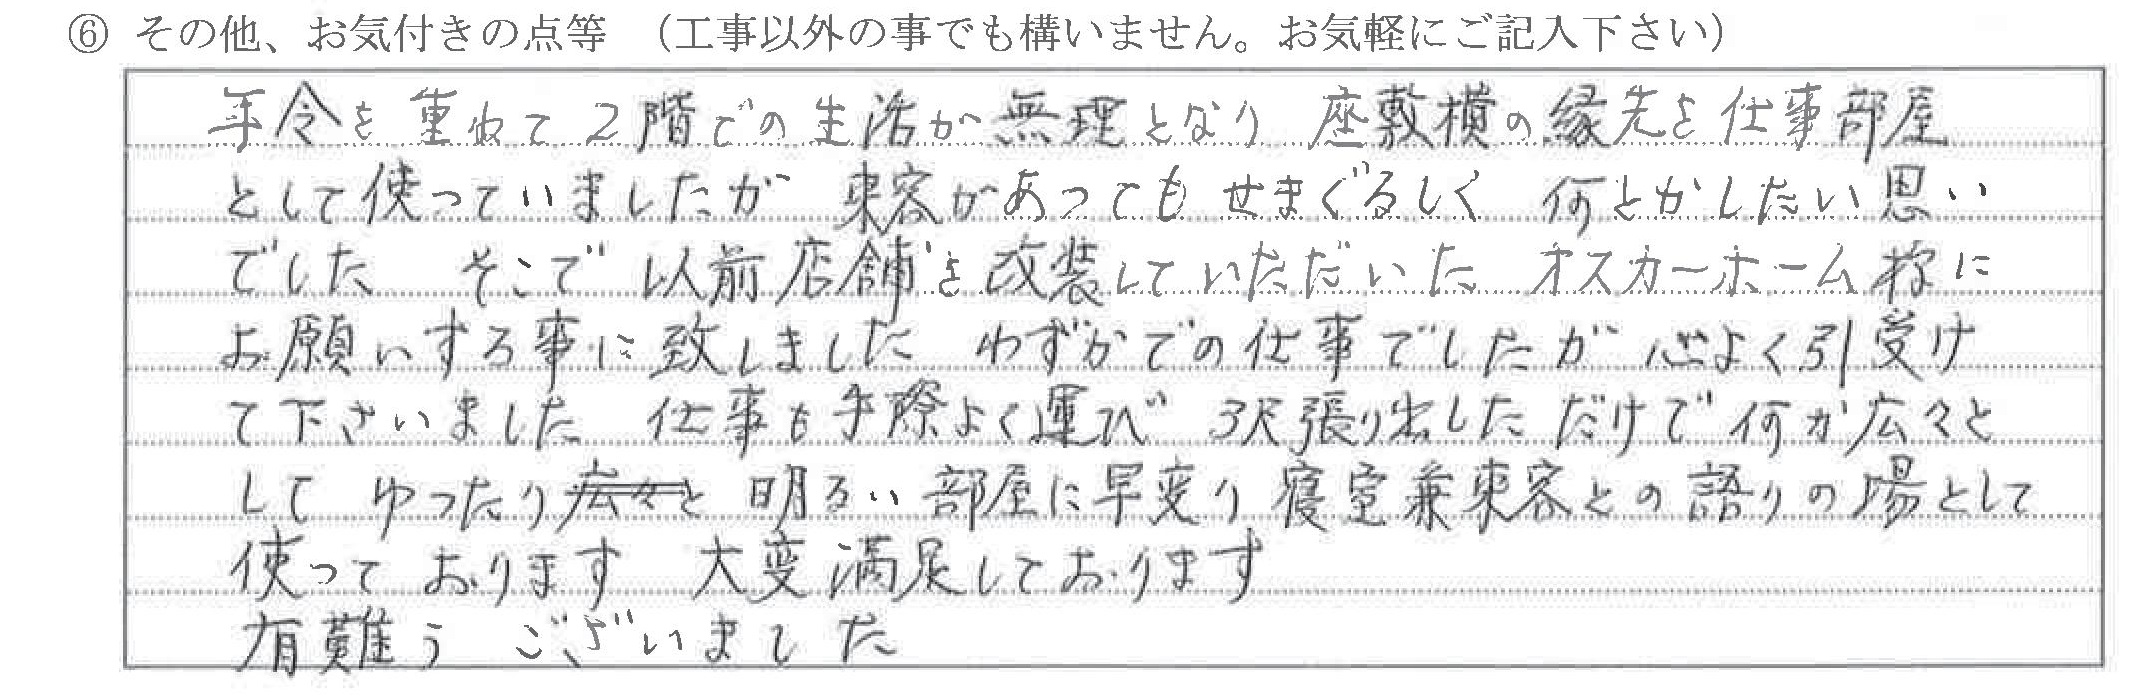 ⑥ その他、お気付きの点等 （工事以外の事でも構いません。お気軽にご記入下さい）
年令を重ねて2階での生活が無理となり 座敷横の縁先を仕事部屋
として使っていましたが 来客があってもせまぐるしく 何とかしたい思い
でした そこで 以前店舗を改装していただいた オスカーホーム様に
お願いする事に致しました わずかでの仕事でしたが 心よく引受け
て下さいました 仕事も手際よく運び 3尺張り出しただけで何か広々と
して ゆったり広々と 明るい部屋に早変り 寝室兼来客との語りの場として
使っております 大変満足しております
有難うございました